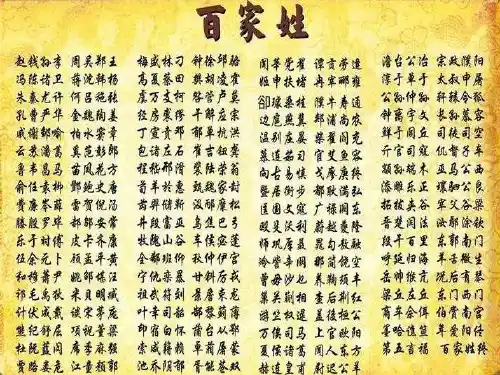 百家姓
赵钱孙李 周吴郑王
冯陈褚卫 蒋沈韩杨
朱秦尤许 何吕施张
孔曹严华 金魏陶姜
戚谢邹喻 柏水窦章
云苏潘葛 奚范彭郎
鲁韦昌马 苗凤花方
俞任袁柳 酆鲍史唐
费廉岑薛 雷贺倪汤
滕殷罗毕 郝邬安常
乐于时傅 皮卞齐康
伍余元卜 顾孟平黄
和穆萧尹 姚邵湛汪
祁毛禹狄 米贝明臧
计伏成戴 谈宋茅庞
熊纪舒屈 项祝董梁
杜阮蓝闵 席季麻强
贾路娄危 江童颜郭
梅盛林刁 钟徐邱骆
高夏蔡田 樊胡凌霍
虞万支柯 昝管卢莫
经房裘缪 干解应宗
丁宣贲邓 郁单杭洪
包诸左石 崔吉钮龚
程嵇邢滑 裴陆荣翁
荀羊於惠 甄曲家封
芮羿储靳 汲邴糜松
井段富巫 乌焦巴弓
牧隗山谷 车侯宓蓬
全郗班仰 秋仲伊宫
宁仇栾暴 甘钭厉戎
祖武符刘 景詹束龙
叶幸司韶 郜黎蓟薄
印宿白怀 蒲邰从鄂
索咸籍赖 卓蔺屠蒙
池乔阴郁 胥能苍双
闻莘党翟 谭贡劳逄
姬申扶堵 冉宰郦雍
郤璩桑桂 濮牛寿通
边扈燕冀 郏浦尚农
温别庄晏 柴瞿阎充
慕连茹习 宦艾鱼容
向古易慎 戈廖庾终
暨居衡步 都耿满弘
匡国文寇 广禄阙东
欧殳沃利 蔚越夔隆
师巩厍聂 晁勾敖融
冷訾辛阚 那简饶空
曾毋沙乜 养鞠须丰
巢关蒯相 查后荆红
游竺权逯 盖益桓公
万俟司马 上官欧阳
夏侯诸葛 闻人东方
赫连皇甫 尉迟公羊
澹台公冶 宗政濮阳
淳于单于 太叔申屠
公孙仲孙 轩辕令狐
钟离宇文 长孙慕容
鲜于闾丘 司徒司空
亓官司寇 仉督子车
颛孙端木 巫马公西
漆雕乐正 壤驷公良
拓跋夹谷 宰父谷梁
晋楚闫法 汝鄢涂钦
段干百里 东郭南门
呼延归海 羊舌微生
岳帅缑亢 况郈有琴
梁丘左丘 东门西门
商牟佘佴 伯赏南宫
墨哈谯笪 年爱阳佟
第五言福 百家姓终